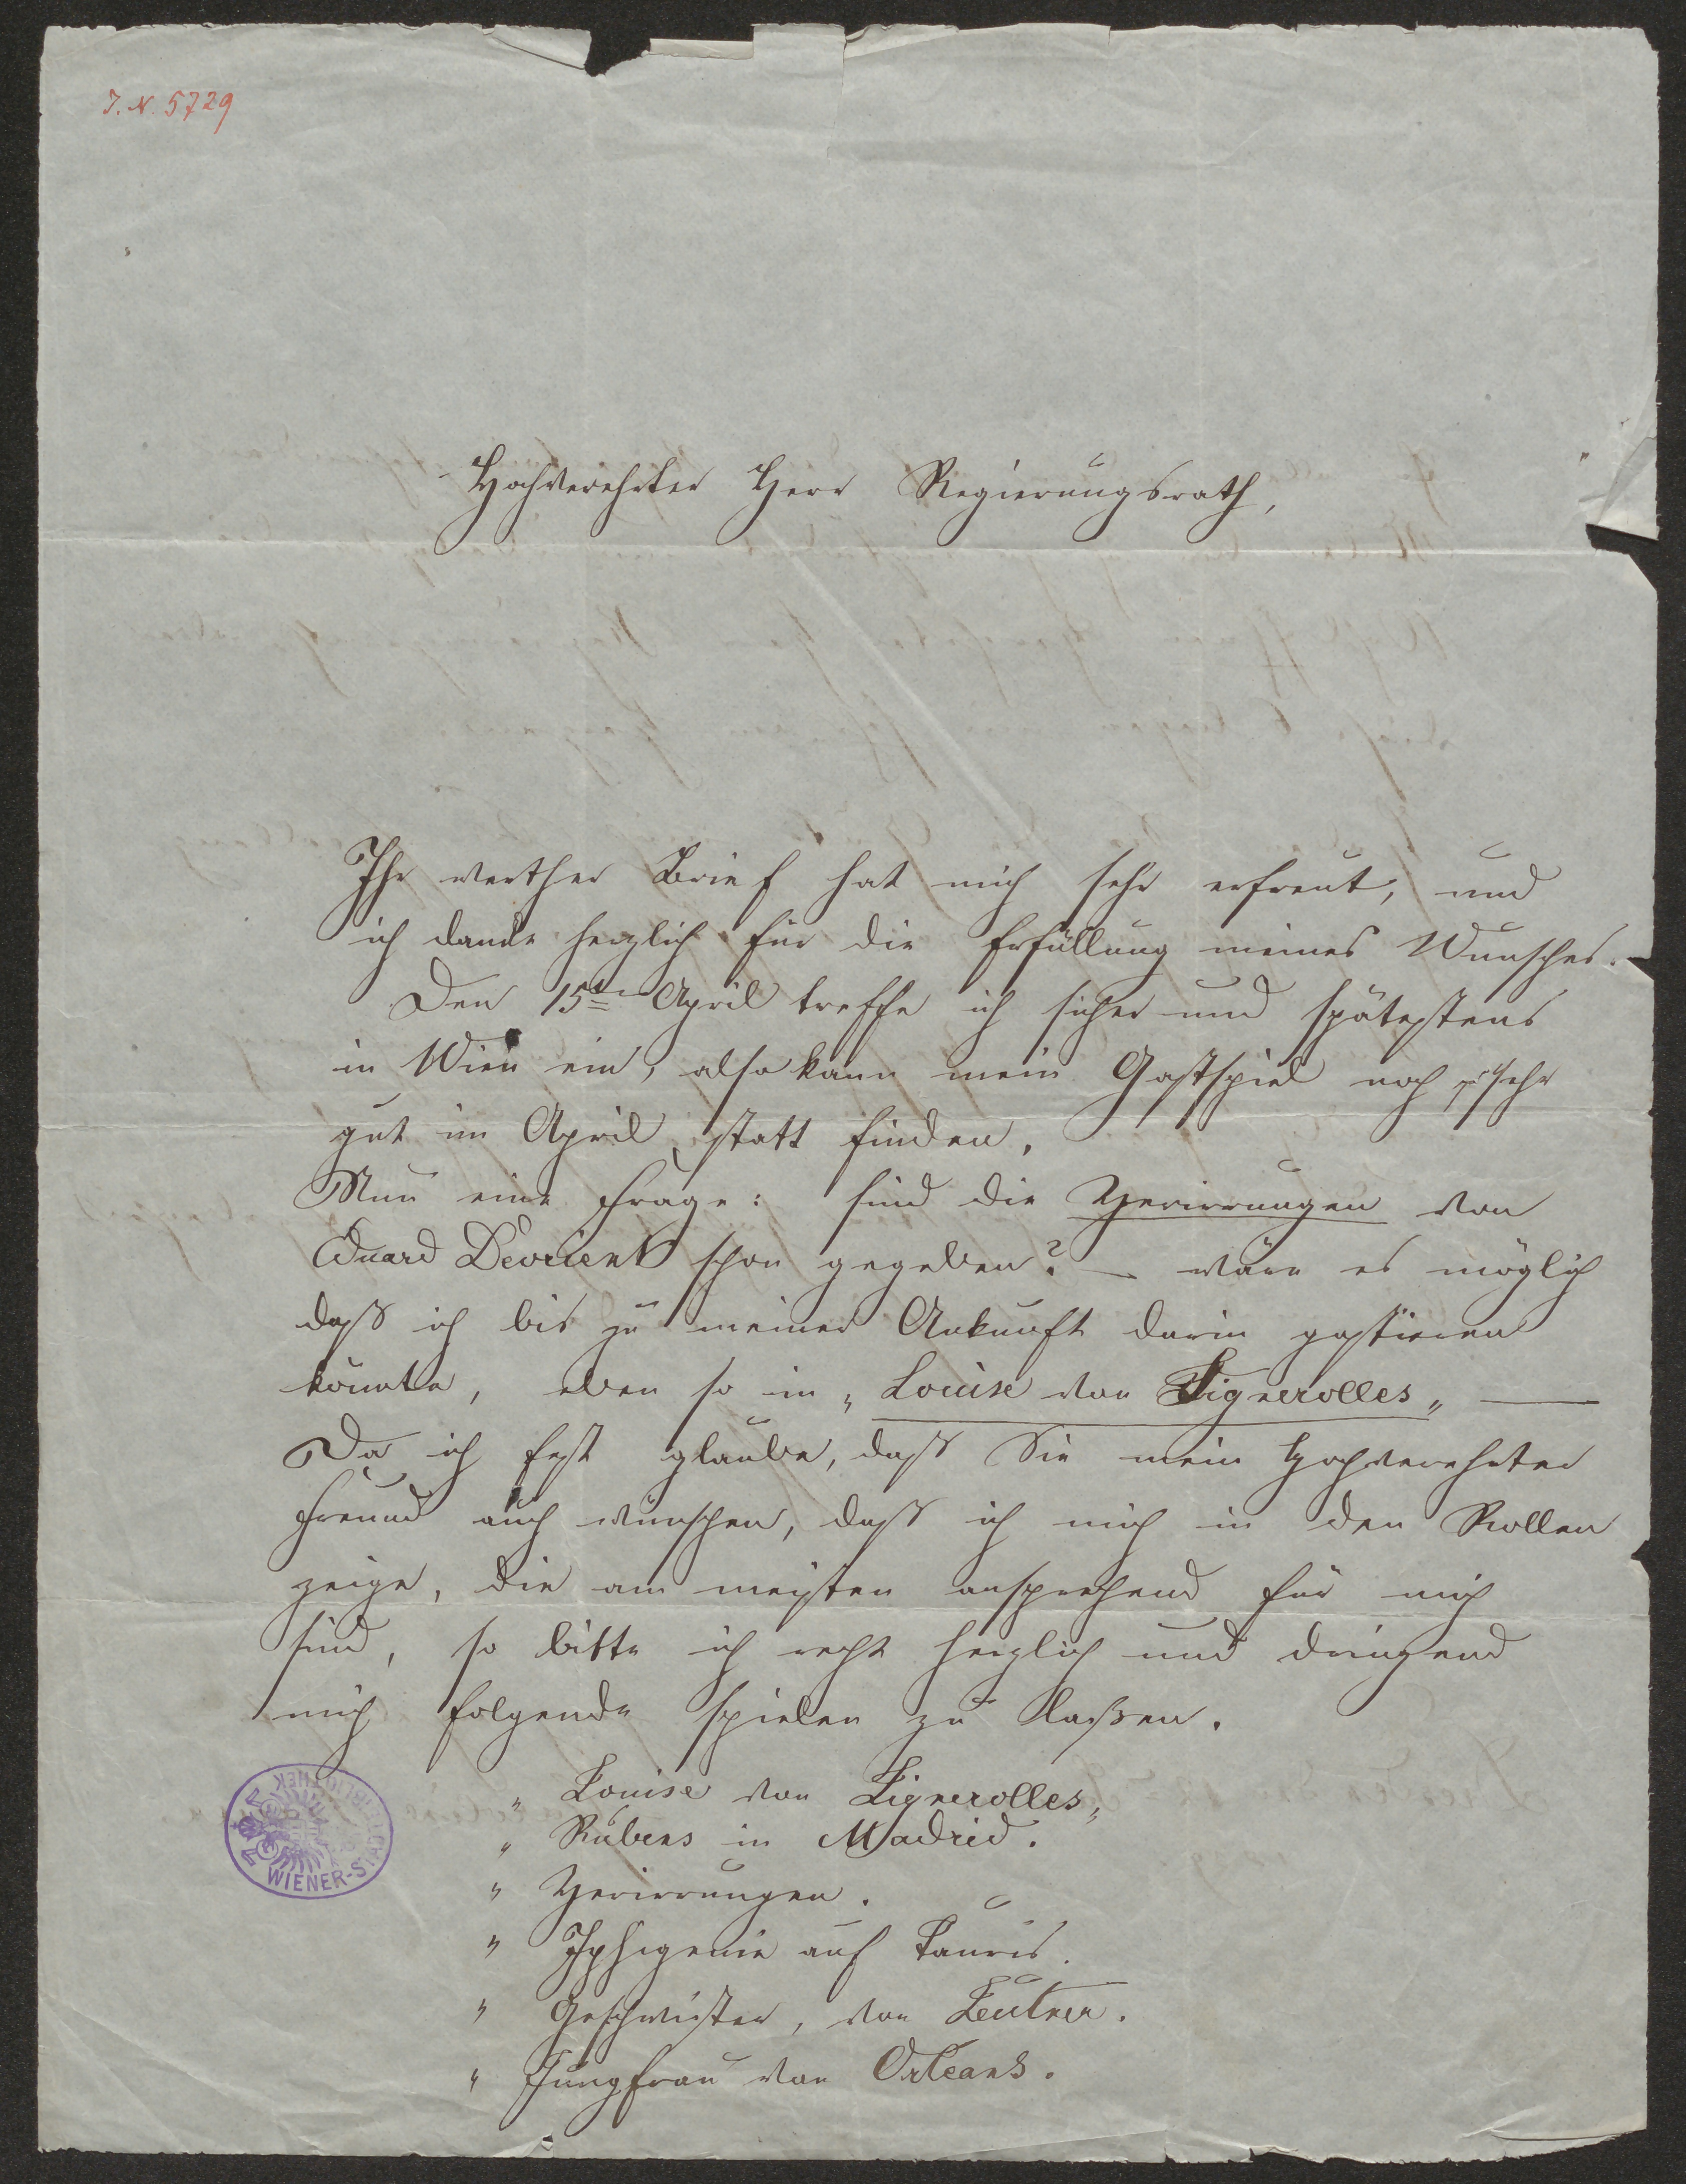 J. N. 5729
Hochverehrter Herr Regierungsrath,
Ihr werther Brief hat mich sehr erfreut, und
ich danke herzlich für die Erfüllung meines Wunsches.
Den 15ten April treffe ich sicher und spätestens
in Wien ein, also kann mein Gastspiel noch sehr
gut im April statt finden.
Nun eine Frage: sind die Verirrungen von
Eduard Devrient schon gegeben? – wäre es möglich
daß ich bis zu meiner Ankunft darin gastieren
könnte, eben so in „Louise von Lignerolles„ —
Da ich fest glaube, daß Sie mein hochverehrter
Freund auch wünschen, daß ich mich in den Rollen
zeige, die am meisten ansprechend für mich
sind, so bitte ich recht herzlich und dringend
mich folgende spielen zu laßen.
„ Louise von Lignerolles„
„ Rubens in Madrid.
" Verirrungen.
" Iphigenie auf Tauris.
" Geschwister, von Leutner.
" Jungfrau von Orleans.
WIENER-STADTBIBLIOTHEK